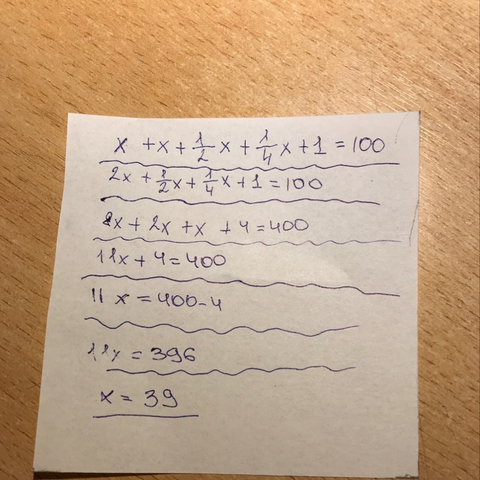 x + x + 1/2 x + 1/4 x + 1 = 100
2x + 1/2 x + 1/4 x + 1 = 100
8x + 2x + x + 4 = 400
11x + 4 = 400
11x = 400-4
11x = 396
x = 39